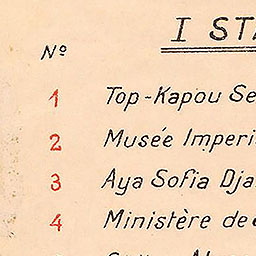 I STA
Nº
1 Top-Kapou Se
2 Musée Imperi
3 Aya Sofia Dja
4 Ministère de